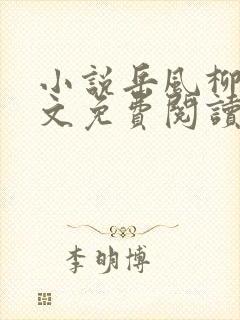 小說岳風柳
文免費閱讀
李明博